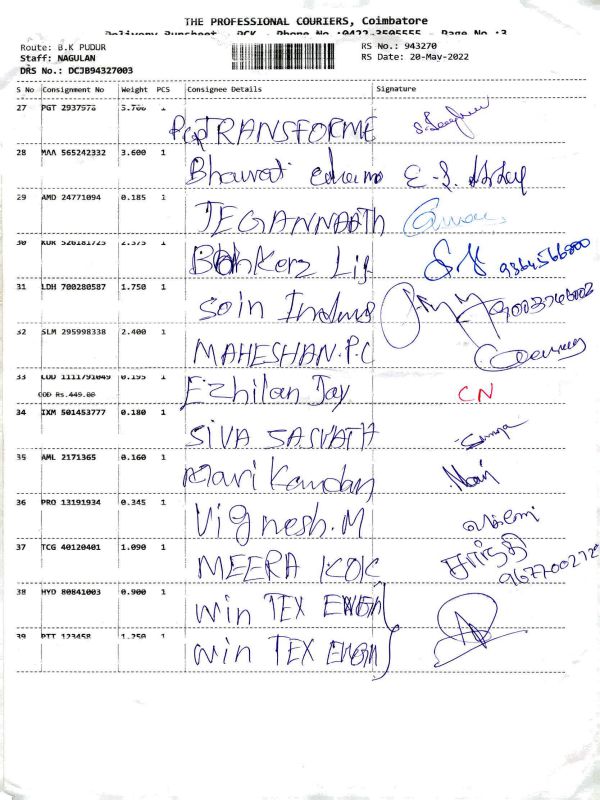 THE PROFESSIONAL COURIERS, Coimbatore
Delivery Runsheet - DCK - Phone No :0422-3505555 - Page No :3
Route: B.K PUDUR RS No.: 943270
Staff: NAGULAN RS Date: 20-May-2022
DRS No.: DCJB94327003
S No Consignment No Weight PCS Consignee Details Signature
27 PGT 2937978 3.700 1
TRANSFORME
28 MAA 565242332 3.600 1
Bharat
29 AMD 24771094 0.185 1
JEGANNAATH
30 KUR 526181725 2.375 1
31 LDH 700280587 1.750 1
Soin Indus
32 SLM 295998338 2.400 1
MAHESHAN.P.C
33 COD 1111791049 0.195 1
COD Rs.449.00
Ezhilan Jay CN
34 IXM 501453777 0.180 1
SIVA SASVATH
35 AML 2171365 0.160 1
Mari Kandan Mari
36 PRO 13191934 0.345 1
Vignesh.M
37 TCG 40120401 1.090 1
MEERA KOK
38 HYD 80841003 0.900 1
Win TEX
39 PTT 123458 1.250 1
Win TEX